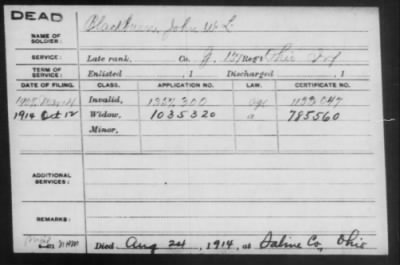 DEAD
NAME OF SOLDIER: Blackburn, John W. L.
SERVICE: Late rank, Co. G. 151 Reg't Ohio Inf
TERM OF SERVICE: Enlisted , 1 Discharged , 1
DATE OF FILING. CLASS. APPLICATION NO. LAW. CERTIFICATE NO.
Invalid, Age
1914 Oct 12 Widow, 1035320 a 785560
Minor,
ADDITIONAL SERVICES:
REMARKS:
Died Aug 24, 1914, at Saline Co, Ohio